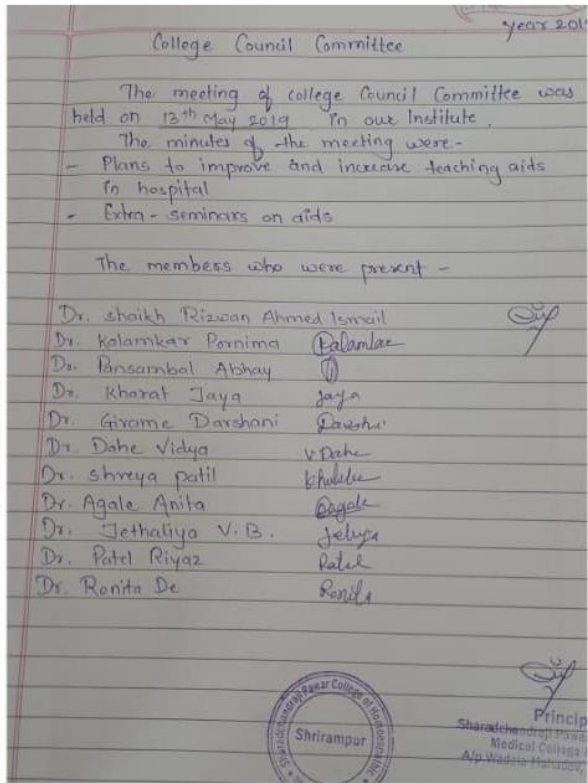 year 201
College Council Committee
The meeting of college Council Committee was
held on 13th May 2019 in our Institute.
The minutes of the meeting were-
- Plans to improve and increase teaching aids
in hospital
- Extra-seminars on aids
The members who were present -
Dr. Shaikh Rizwan Ahmed Ismail
Dr. Kalamkar Pornima Kalamkar
Dr. Pansambal Abhay
Dr. Kharat Jaya Jaya
Dr. Girame Darshani
Dr. Dahe Vidya V Dahe
Dr. Shreya patil
Dr. Agale Anita Aagale
Dr. Jethaliya V.B.
Dr. Patel Riyaz Patel
Dr. Ronita De Ronita
Sharadchandraji Pawar College of Homoeopathic
Shrirampur
Princip
Sharadchandraji Pawa
Medical College
A/p. Wadala Mahadev,